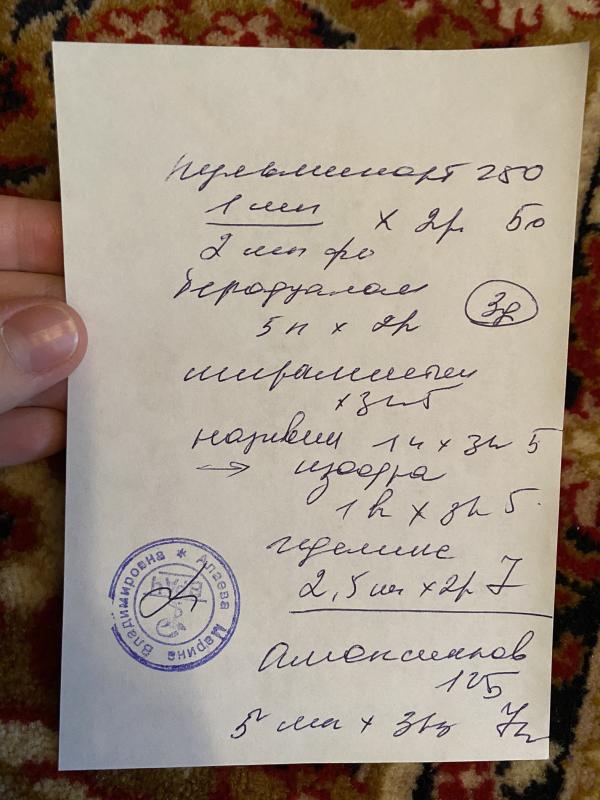 Пульмикорт 250
1 мл х 2р 5д
2 мл фр
беродуалом
5 к х 2р 3д
мирамистин
х 3р 5
називин 1к х 3р 5
→ изофра
1 в х 3р 5.
геделикс
2,5 мл х 2р 7
Амоксиклав
125
5 мл х 3р 7д
Алаева Марина Владимировна *